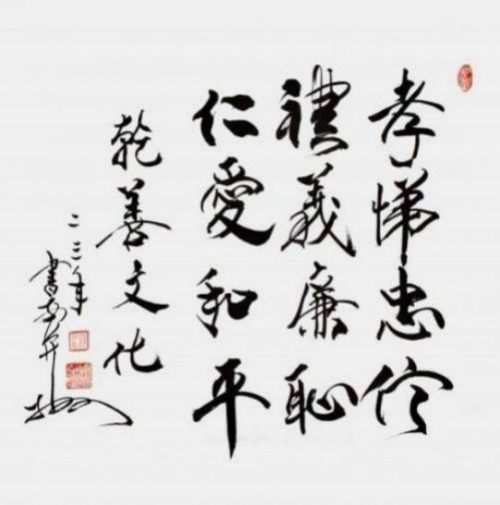 孝悌忠信
禮義廉恥
仁愛和平
乾善文化
二〇二二年